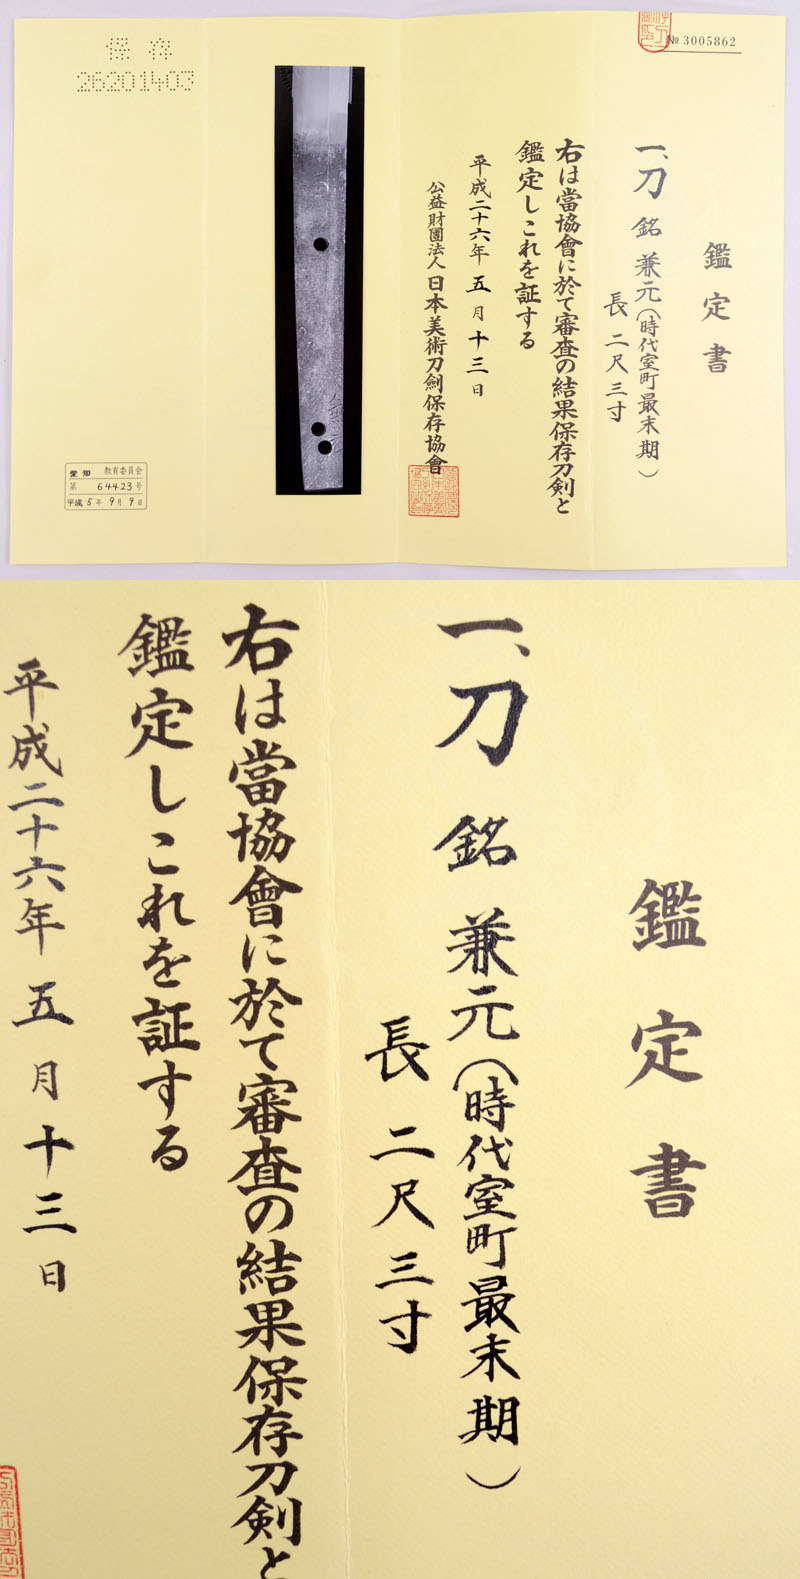 № 3005862
鑑定書
一、刀 銘 兼元(時代室町最末期)
長 二尺三寸
右は當協會に於て審査の結果保存刀剣と
鑑定しこれを証する
平成二十六年 五月十三日
公益財團法人 日本美術刀劍保存協會
保存
26201403
愛知 教育委員会
第 64423号
平成 5年 9月 9日
鑑定書
一、刀 銘 兼元(時代室町最末期)
長 二尺三寸
右は當協會に於て審査の結果保存刀剣と
鑑定しこれを証する
平成二十六年 五月十三日